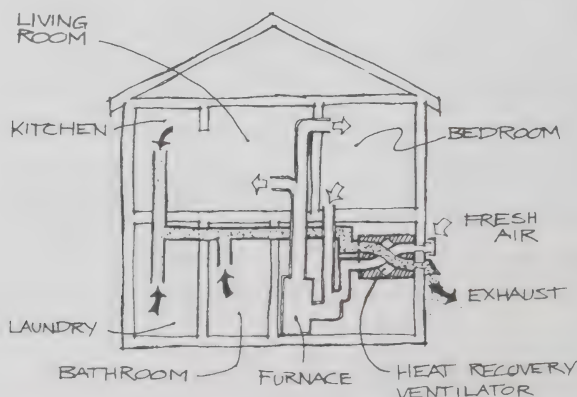 LIVING
ROOM
KITCHEN
BEDROOM
FRESH
AIR
EXHAUST
LAUNDRY
BATHROOM
FURNACE
HEAT RECOVERY
VENTILATOR